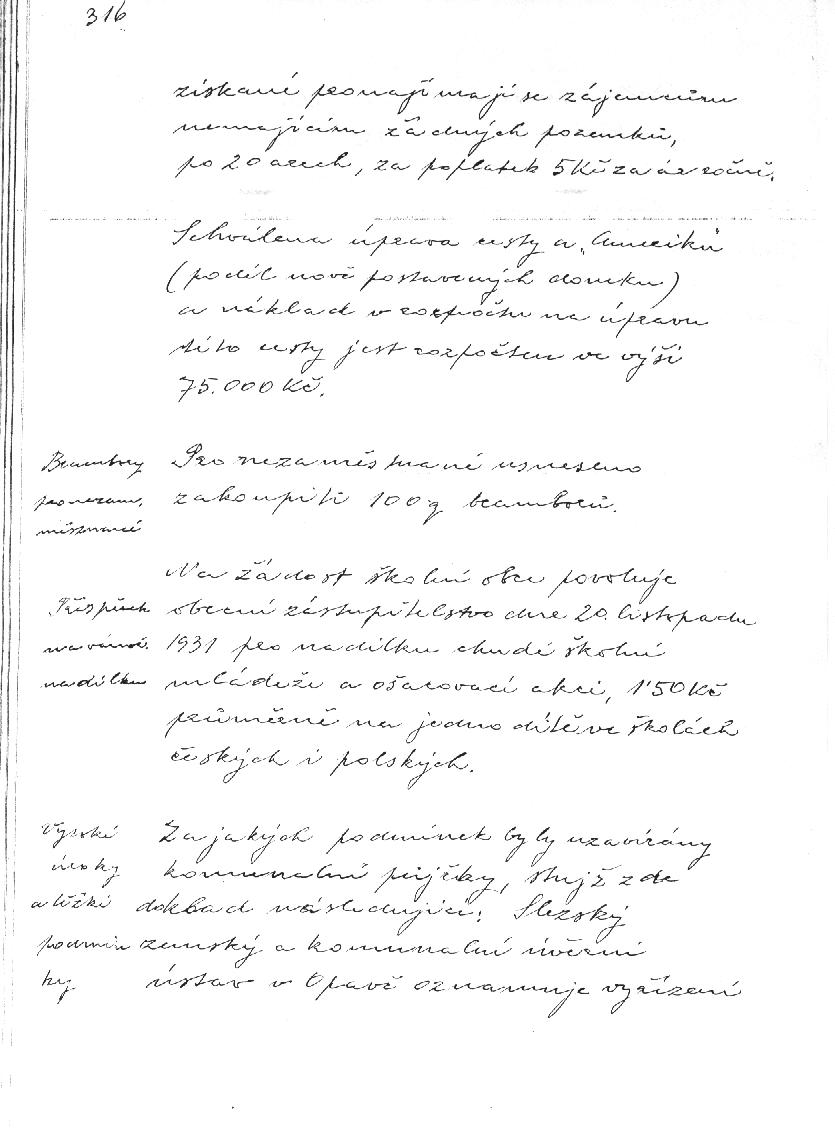 316
získané pronajímají se zájemcům
nemajícím žádných pozemků,
po 20 arech, za poplatek 5 Kč za ár ročně.
Schválena úprava cesty a „Ameriků"
(podél nově postavených domků)
a náklad v rozpočtu na úpravu
této cesty jest rozpočten ve výši
75.000 Kč.
Brambory
pro nezam,
městnané
Pro nezaměstnané usneseno
zakoupiti 100 q bramborů.
Na žádost školní obce povoluje
Příspěvek
na vánoč.
nadílku
obecní zastupitelstvo dne 20. listopadu
1931 pro nadílku chudé školní
mládeže a ošacovací akci, 1'50 Kč
průměrně na jedno dítě ve školách
českých i polských.
Vysoké
úroky
a těžké
podmín
ky
Za jakých podmínek byly uzavírány
komunální půjčky, stůjž zde
doklad následující: Slezský
zemský a komunální úvěrní
ústav v Opavě oznamuje vyřízení